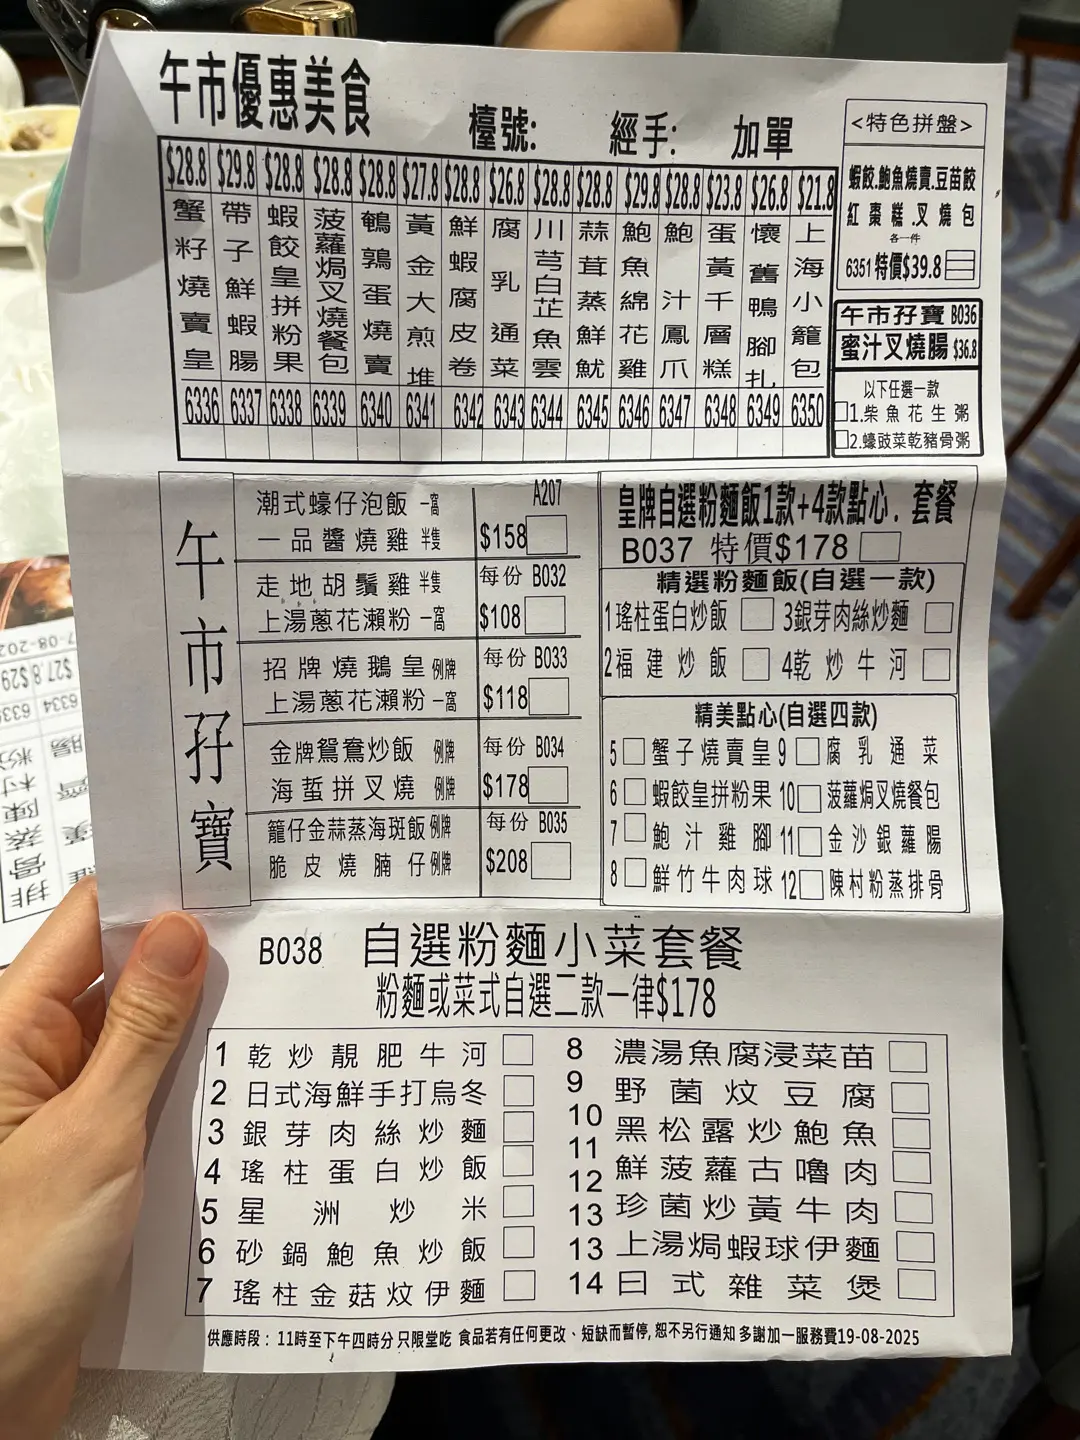 午市優惠美食
檯號:
經手:
加單
$28.8 $29.8 $28.8 $28.8 $28.8 $27.8 $28.8 $26.8 $28.8 $28.8 $29.8 $28.8 $23.8 $26.8 $21.8
蟹籽燒賣皇
帶子鮮蝦腸
蝦餃皇拼粉果
菠蘿焗叉燒餐包
鵪鶉蛋燒賣
黃金大煎堆
鮮蝦腐皮卷
腐乳通菜
川芎白芷魚雲
蒜茸蒸鮮魷
鮑魚綿花雞
鮑汁鳳爪
蛋黃千層糕
懷舊鴨腳扎
上海小籠包
6336 6337 6338 6339 6340 6341 6342 6343 6344 6345 6346 6347 6348 6349 6350
<特色拼盤>
蝦餃.鮑魚燒賣.豆苗餃
紅棗糕.叉燒包
各一件
6351 特價$39.8
午市孖寶 B036
蜜汁叉燒腸 $36.8
以下任選一款
1.柴魚花生粥
2.蠔豉菜乾豬骨粥
午市孖寶
潮式蠔仔泡飯 一窩 A207
一品醬燒雞 半隻 $158
走地胡鬚雞 半隻 每份 B032
上湯蔥花瀨粉 一窩 $108
招牌燒鵝皇 例牌 每份 B033
上湯蔥花瀨粉 一窩 $118
金牌鴛鴦炒飯 例牌 每份 B034
海蜇拼叉燒 例牌 $178
籠仔金蒜蒸海斑飯 例牌 每份 B035
脆皮燒腩仔 例牌 $208
皇牌自選粉麵飯1款+4款點心.套餐
B037 特價$178
精選粉麵飯(自選一款)
1瑤柱蛋白炒飯 3銀芽肉絲炒麵
2福建炒飯 4乾炒牛河
精美點心(自選四款)
5 蟹子燒賣皇 9 腐乳通菜
6 蝦餃皇拼粉果 10 菠蘿焗叉燒餐包
7 鮑汁雞腳 11 金沙銀蘿腸
8 鮮竹牛肉球 12 陳村粉蒸排骨
B038 自選粉麵小菜套餐
粉麵或菜式自選二款一律$178
1 乾炒靚肥牛河
2 日式海鮮手打烏冬
3 銀芽肉絲炒麵
4 瑤柱蛋白炒飯
5 星洲炒米
6 砂鍋鮑魚炒飯
7 瑤柱金菇炆伊麵
8 濃湯魚腐浸菜苗
9 野菌炆豆腐
10 黑松露炒鮑魚
11 鮮菠蘿古嚕肉
12 珍菌炒黃牛肉
13
13 上湯焗蝦球伊麵
14 日式雜菜煲
供應時段: 11時至下午四時分 只限堂吃 食品若有任何更改、短缺而暫停, 恕不另行通知 多謝加一服務費19-08-2025